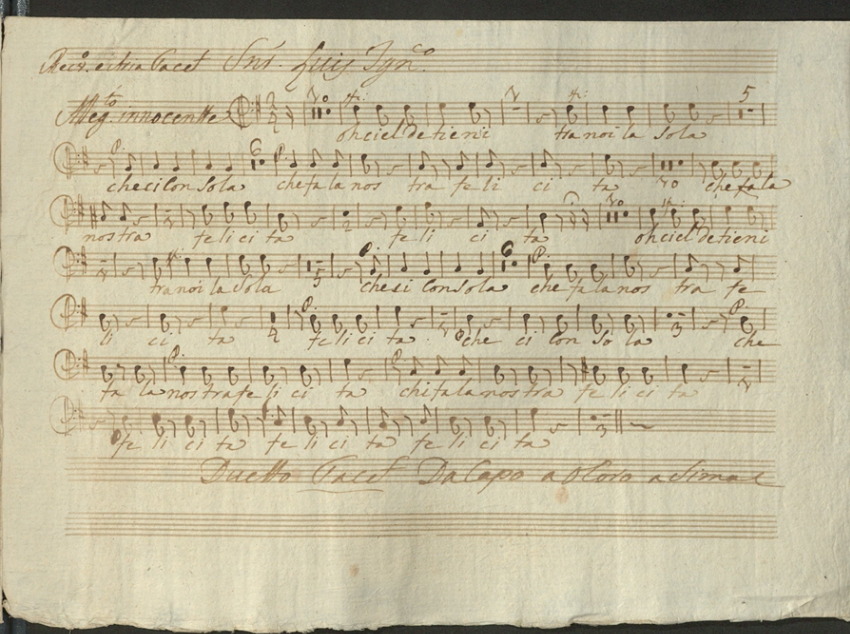 Recit.º e Aria Tacet Snr. Luis Ign.co
Alleg.to innocente
oh ciel detieni tra noi la Sola 5
che ci Consola 6 che fa la nos tra fe li ci ta che fa la
nostra fe li ci ta fe li ci ta oh ciel detieni
tra noi la Sola 5 che si Consola 6 che fa la nos tra fe
li ci ta fe li ci ta che ci Con So la 3 che
fa la nostra fe li ci ta chi fa la nostra fe li ci ta
fe li ci ta fe li ci ta fe li ci ta 3
Duetto Tacet Da Capo a o Coro